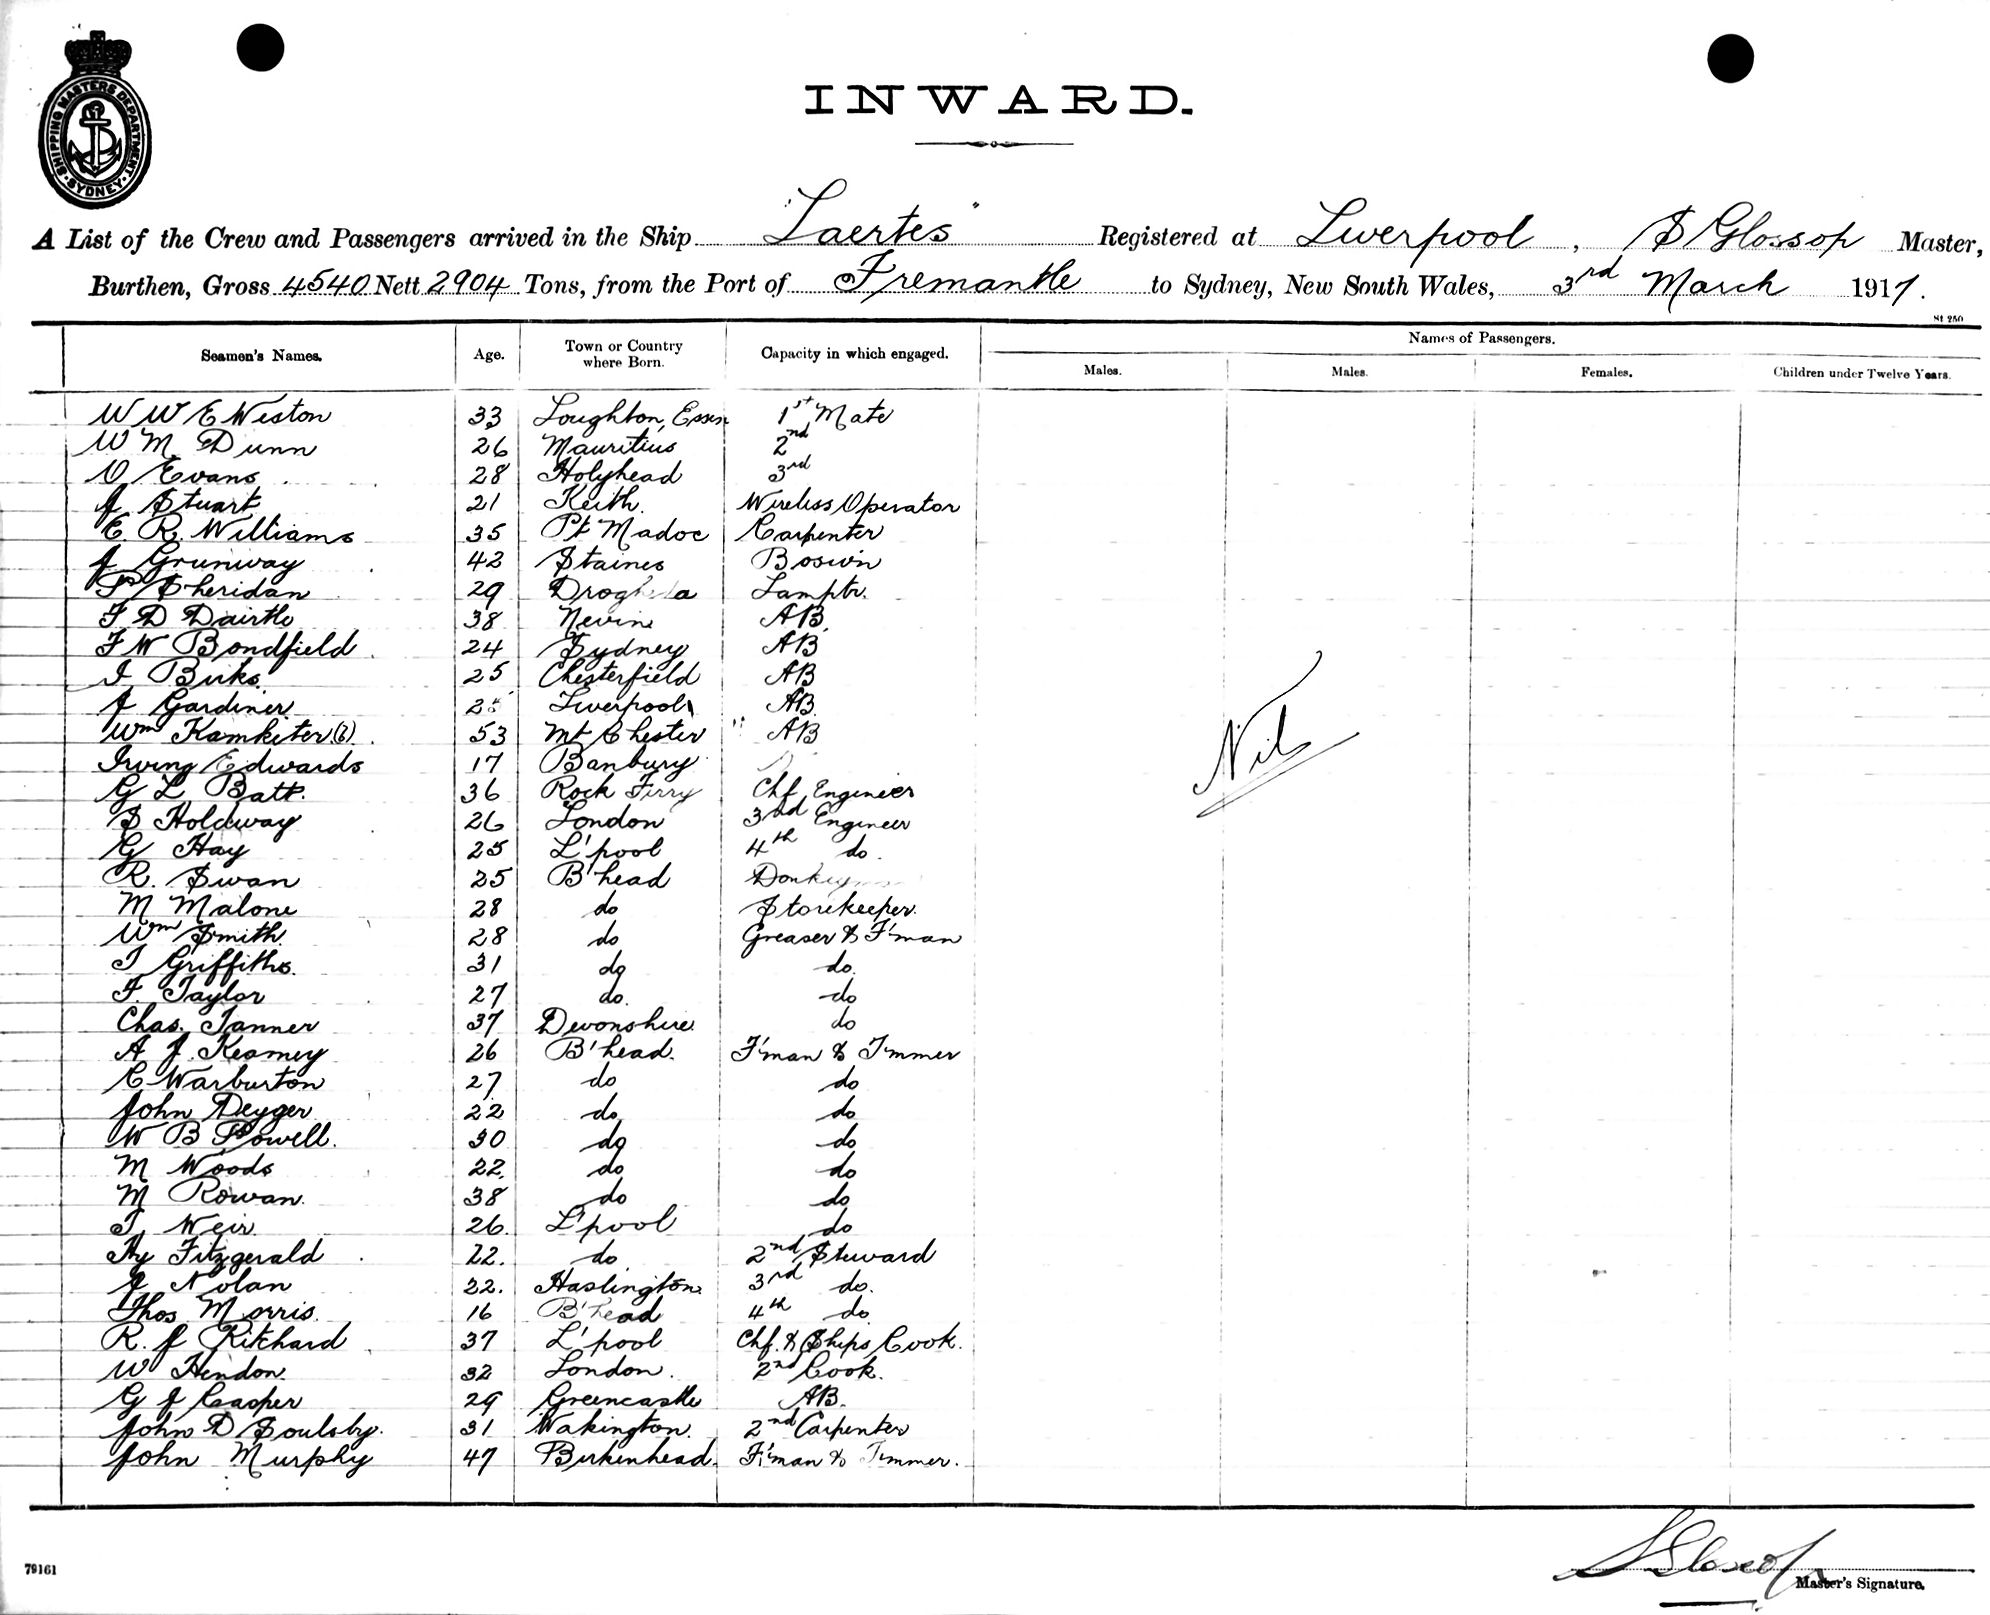 SHIPPING MASTERS DEPARTMENT
SYDNEY
INWARD.
A List of the Crew and Passengers arrived in the Ship "Laertes" Registered at Liverpool, S Glossop Master,
Burthen, Gross 4540 Nett 2904 Tons, from the Port of Fremantle to Sydney, New South Wales, 3rd March 1917.
St 250
Seamen's Names. Age. Town or Country where Born. Capacity in which engaged. Names of Passengers.
Males. Males. Females. Children under Twelve Years.
W W E Weston 33 Loughton, Essex 1st Mate
W M Dunn 26 Mauritius 2nd
O Evans 28 Holyhead 3rd
J Stuart 21 Keith Wireless Operator
E. R. Williams 35 Pt Madoc Carpenter
J Grunway 42 Staines Boswin
P Sheridan 29 Lamptr.
38 Nevin AB
F W Bondfield 24 Sydney AB
Birks 25 Chesterfield AB
J Gardiner 25 Liverpool AB
Wm 53 AB
Irving Edwards 17 Banbury
G L Batt. 36 Rock Ferry Chf Engineer
S Holdway 26 London 3rd Engineer
G Hay 25 L'pool 4th do.
R. Swan 25 B'head
M Malone 28 do Storekeeper.
Wm Smith 28 do Greaser & F'man
T Griffiths. 31 do do.
F. Taylor 27 do. do
Chas. Tanner 37 Devonshire do
A J Kearney 26 B'head. F'man & Tmmer
C Warburton 27 do do
John Deyger 22 do do
W B Powell. 30 do do
M Woods 22. do do
M Rowan. 38 do do
T Weir 26. L'pool do
Hy Fitzgerald 22. do 2nd Steward
J Nolan 22. Haslington 3rd do.
Thos Morris. 16 B'head 4th do
R. J Ritchard 37 L'pool Chf. & Ships Cook.
W Hendon. 32 London. 2nd Cook.
G J Casper 29 Greencastle AB.
John D Soulsby. 31 Wakington 2nd Carpenter
John Murphy 47 Birkenhead. F'man & Tmmer.
Nil
S Glossop
79161
Master's Signature.